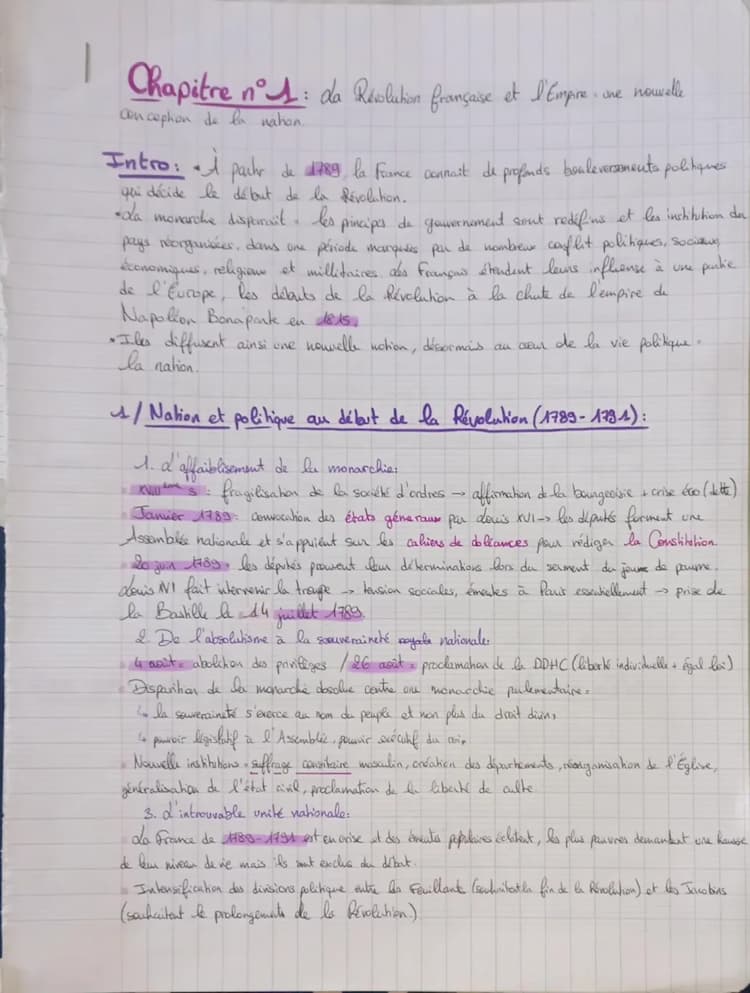 Chapitre n°1 : La Révolution française et l'Empire : une nouvelle
conception de la nation.
Intro : • À partir de 1789, la France connait de profonds bouleversements politiques
qui décide le début de la Révolution.
• La monarchie disparait : les principes de gouvernement sont redéfinis et les institution du
pays réorganisées, dans une période marquées par de nombreux conflit politiques, sociaux,
économiques, religieux et millitaires, des Français étendent leurs influense à une partie
de l'Europe, les débuts de la Révolution à la chute de l'empire de
Napoléon Bonaparte en 1815.
• Iles diffusent ainsi une nouvelle notion, désormais au cœur de la vie politique :
la nation.
1/ Nation et politique au début de la Révolution (1789-1791) :
1. L'affaiblisement de la monarchie :
XVIIIème s : fragilisation de la société d'ordres → affirmation de la bourgeoisie + crise éco (dette)
Janvier 1789 : convocation des états géneraux par Louis XVI → les députés forment une
Assemblée nationale et s'appuient sur les cahiers de doléances pour rédiger la Constitution
20 juin 1789 : les députés prouvent leur déterminations lors du serment du jeume de paume.
Louis XVI fait intervenir la troupe → tension sociales, émeutes à Paris essentiellement → prise de
la Bastille le 14 juillet 1789.
2. De l'absolutisme à la souveraineté royale nationale :
4 août : abolition des privilèges / 26 août : proclamation de la DDHC (liberté individuelle + égal loi)
Disparition de la monarchie absolue contre une monarchie parlementaire :
↳ la souveraineté s'exerce au nom du peuple et non plus du droit divin
↳ pouvoir législatif à l'Assemblée, pouvoir exécutif du roi.
Nouvelle institutions : suffrage censitaire masculin, création des départements, réorganisation de l'Église,
généralisation de l'état civil, proclamation de la liberté de culte.
3. L'introuvable unité nationale :
La France de 1789-1791 est en crise et des émeutes populaires éclatent, les plus pauvres demandent une hausse
de leur niveau de vie mais ils sont exclus du débat.
Intensification des divisions politique entre les Feuillants (souhaitent la fin de la Révolution) et les Jacobins
(souhaitent le prolongements de la Révolution)